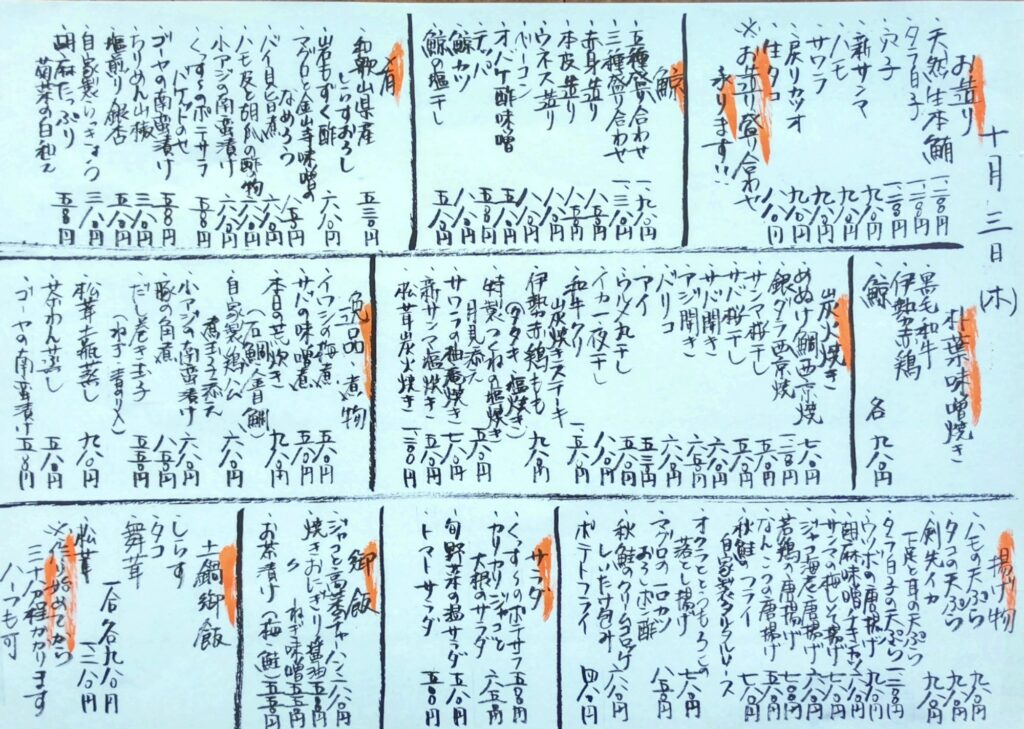 十月三日(木)
お造り
・天然生本鮪 一、二八〇円
・タラ白子 一、二八〇円
・穴子 九八〇円
・新サンマ 九八〇円
・ハモ 九八〇円
・サワラ 九八〇円
・戻りカツオ 九八〇円
・生タコ 八八〇円
※お造り盛り合わせ
承ります!!
鯨
・五種盛り合わせ 一、九八〇円
・三種盛り合わせ 一、三八〇円
・赤身造り 八五〇円
・本皮造り 八五〇円
・ウネス造り 八八〇円
・ベーコン 八八〇円
・オバケ酢味噌 五八〇円
・テッパ 五八〇円
・鯨カツ 八八〇円
・鯨の塩干し 五八〇円
肴
・和歌山県産
しらすおろし 五三〇円
・岩もずく酢 六八〇円
・マグロと金山寺味噌の
なめろう 八五〇円
・バイ貝旨煮 六八〇円
・ハモ皮と胡瓜の酢物 六八〇円
・小アジの南蛮漬け 六八〇円
・くっすうのポテサラ
バケットのせ 五八〇円
・ゴーヤの南蛮漬け 五八〇円
・ちりめん山椒 三八〇円
・塩煎り銀杏 五八〇円
・自家製らっきょう 三八〇円
・胡麻たっぷり
菊菜の白和え 五八〇円
朴葉味噌焼き
・黒毛和牛
・伊勢赤鶏
・鯨
各 九八〇円
炭火焼き
・めぬけ鯛西京焼 七八〇円
・銀ダラ西京焼 一、二八〇円
・サンマ桜干し 五八〇円
・サバ桜干し 五八〇円
・サバ開き 六八〇円
・アジ開き 六八〇円
・バリコ 六八〇円
・アイ 五三〇円
・ウルメ丸干し 五八〇円
・イカ一夜干し 八八〇円
・和牛クリ
炭火焼きステーキ 一、五八〇円
・伊勢赤鶏もも
(タタキ・塩焼き) 九八〇円
・特製つくねの塩焼き
月見添え 五八〇円
・サワラの柚庵焼き 七八〇円
・新サンマ塩焼き 五八〇円
・松茸炭火焼き 一、二八〇円
逸品・煮物
・イワシの梅煮 五八〇円
・サバの味噌煮 五八〇円
・本日の荒炊き
(石鯛、金目鯛) 九八〇円
・自家製鶏ハム
煮玉子添え 六八〇円
・小アジの南蛮漬け 六八〇円
・豚の角煮 八五〇円
・だし巻き玉子 五八〇円
(ねぎ・青のり入)
・松茸土瓶蒸し 九八〇円
・茶わん蒸し 五八〇円
・ゴーヤの南蛮漬け 五八〇円
揚げ物
・ハモの天ぷら 九八〇円
・タコの天ぷら 九八〇円
・剣先イカ
下足と耳の天ぷら 九八〇円
・タラ白子の天ぷら 一、二八〇円
・ウツボの唐揚げ 九八〇円
・サンマの梅しそ揚げ 七八〇円
・ジャコ海老唐揚げ 六八〇円
・若鶏の唐揚げ 七八〇円
・なんこつの唐揚げ 五八〇円
・秋鮭のフライ
自家製タルタルソース 七八〇円
・オクラととうもろこしの
落とし揚げ 七八〇円
・マグロの一口カツ
おろしポン酢 八五〇円
・秋鮭クリームコロッケ
しいたけ包み 六八〇円
・ポテトフライ 四八〇円
サラダ
・くっすうのポテサラ 五八〇円
・カリカリジャコと
大根のサラダ 六五〇円
・旬野菜の温サラダ 五八〇円
・トマトサラダ 五八〇円
御飯
・ジャコと高菜チャーハン 六八〇円
・焼きおにぎり 醤油 五五〇円
ねぎ味噌 五五〇円
・お茶漬け(梅・鮭) 五五〇円
土鍋御飯
・しらす
・タコ
・舞茸
一合各九八〇円
・松茸 一、二八〇円
※作り始めてから
三十分程かかります
ハーフも可